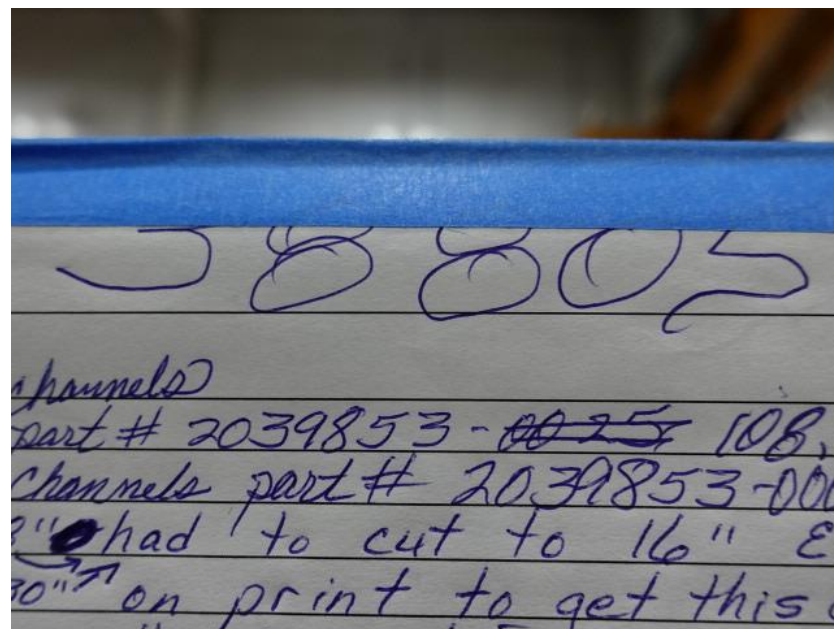 channels
part # 2039853-0025 108,
channels part # 2039853-000
8" had to cut to 16" &
30" on print to get this